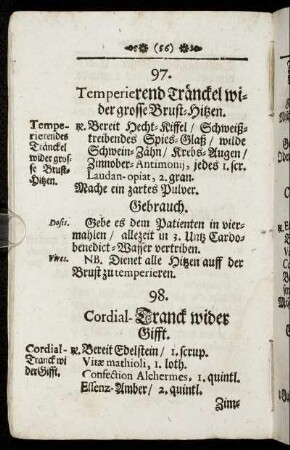 (56)
97.
Temperierend Tränckel wi-
der grosse Brust-Hitzen.
Tempe-
rierendes
Tränckel
wider gros-
se Brust-
Hitzen.
℞. Bereit Hecht-Kiffel / Schweiß-
treibendes Spies-Glaß / wilde
Schwein-Zähn / Krebs-Augen /
Zinnober-Antimonj, jedes 1. scr.
Laudan-opiat, 2. gran.
Mache ein zartes Pulver.
Gebrauch.
Dosis.
Gebe es dem Patienten in vier-
mahlen / allezeit in 3. Untz Cardo-
benedict-Wasser vertriben.
Vires.
NB. Dienet alle Hitzen auff der
Brust zu temperieren.
98.
Cordial-Tranck wider
Gifft.
Cordial-
Tranck wi
der Gifft.
℞. Bereit Edelstein / 1. scrup.
Vitæ mathioli, 1. loth.
Confection Alchermes, 1. quintl.
Essenz-Amber / 2. quintl.
Zim-